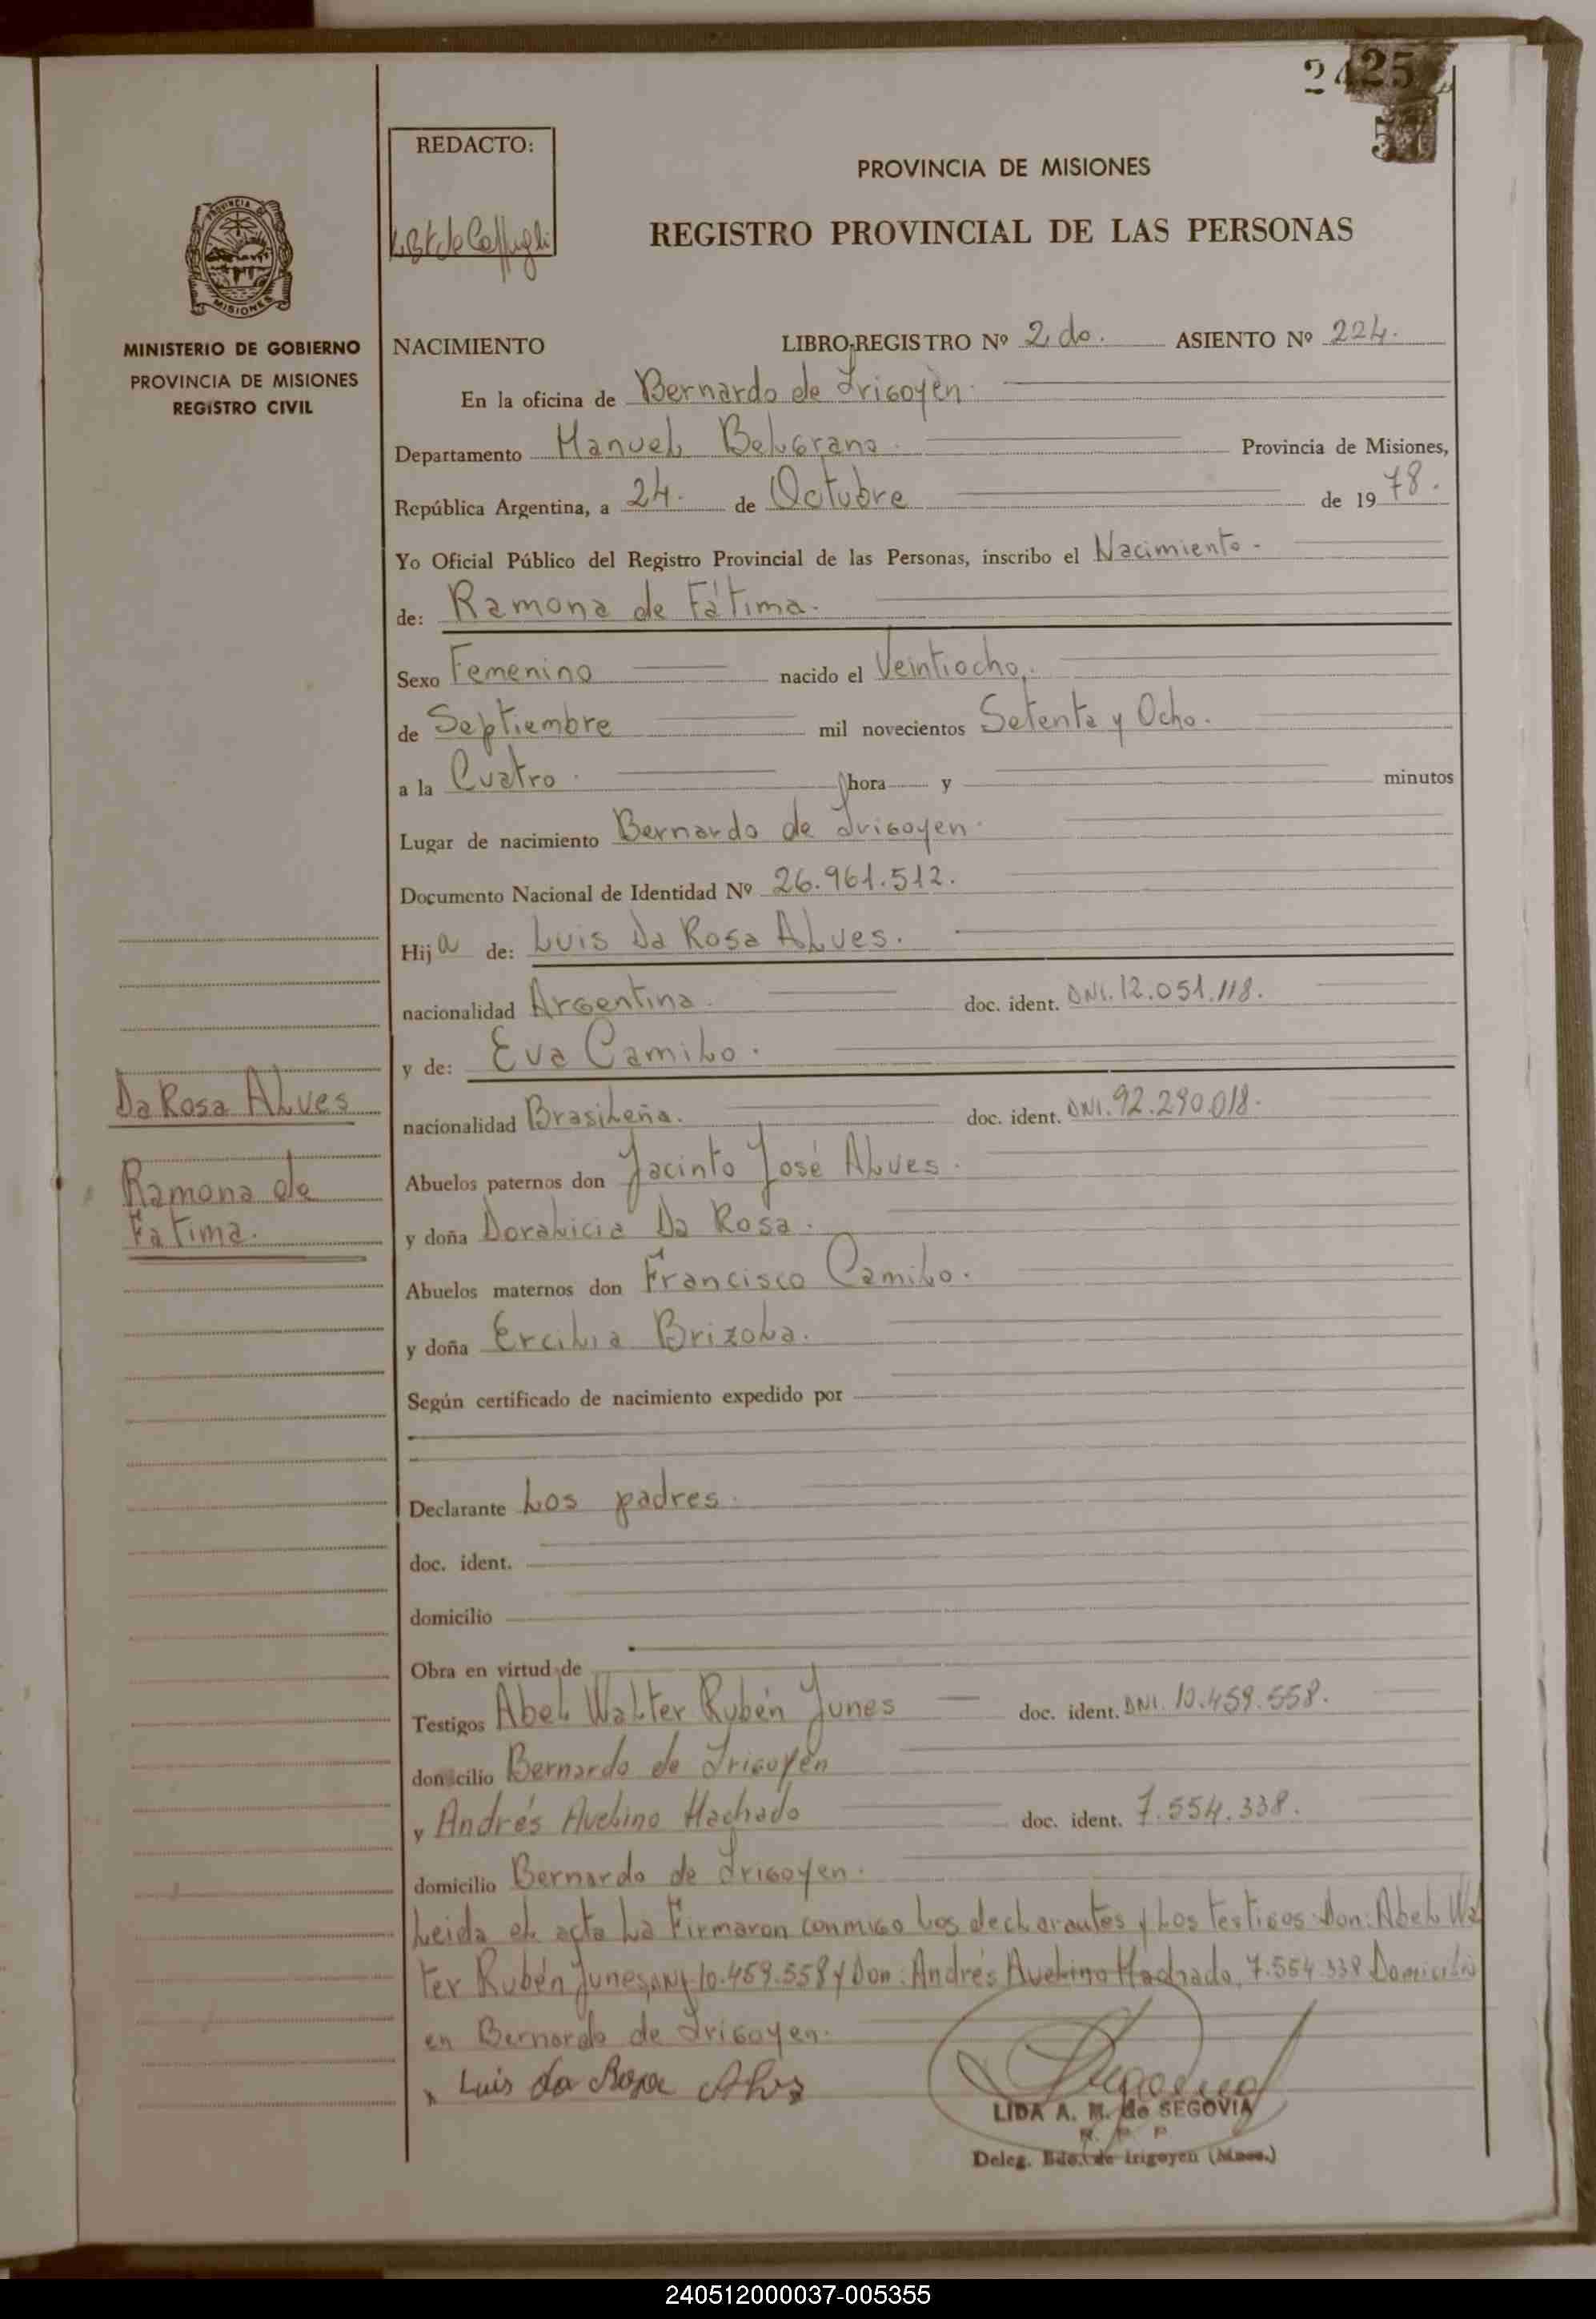 2425
REDACTO:
PROVINCIA DE MISIONES
REGISTRO PROVINCIAL DE LAS PERSONAS
PROVINCIA DE
MISIONES
MINISTERIO DE GOBIERNO
PROVINCIA DE MISIONES
REGISTRO CIVIL
NACIMIENTO LIBRO-REGISTRO Nº 2do. ASIENTO Nº 224.
En la oficina de Bernardo de Irigoyen.
Departamento Manuel Belgrano. Provincia de Misiones,
República Argentina, a 24. de Octubre de 1978.
Yo Oficial Público del Registro Provincial de las Personas, inscribo el Nacimiento.
de: Ramona de Fátima.
Sexo Femenino nacido el Veintiocho,.
de Septiembre mil novecientos Setenta y Ocho.
a la Cuatro. hora y minutos
Lugar de nacimiento Bernardo de Irigoyen.
Documento Nacional de Identidad Nº 26.961.512.
Hija de: Luis Da Rosa Alves.
nacionalidad Argentina. doc. ident. DNI. 12.051.118.
y de: Eva Camilo.
Da Rosa Alves
nacionalidad Brasileña. doc. ident. DNI. 92.290.018.
Abuelos paternos don Jacinto José Alves.
Ramona de
Fatima.
y doña Doralicia Da Rosa.
Abuelos maternos don Francisco Camilo.
y doña Ercilia Brizola.
Según certificado de nacimiento expedido por
Declarante Los padres.
doc. ident.
domicilio
Obra en virtud de
Testigos Abel Walter Rubén Junes doc. ident. DNI. 10.459.558.
domicilio Bernardo de Irigoyen
y Andrés Avelino Machado doc. ident. 7.554.338.
domicilio Bernardo de Irigoyen.
Leida el acta la Firmaron conmigo los declarantes y los testigos Don: Abel Wal
ter Rubén Junes, DNI 10.459.558 y Don: Andrés Avelino Machado, 7.554.338 Domicilio
en Bernardo de Irigoyen.
Luis da Rosa Alves
LIDA A. M. de SEGOVIA
Deleg. Bdo. de Irigoyen (Mnes.)
240512000037-005355